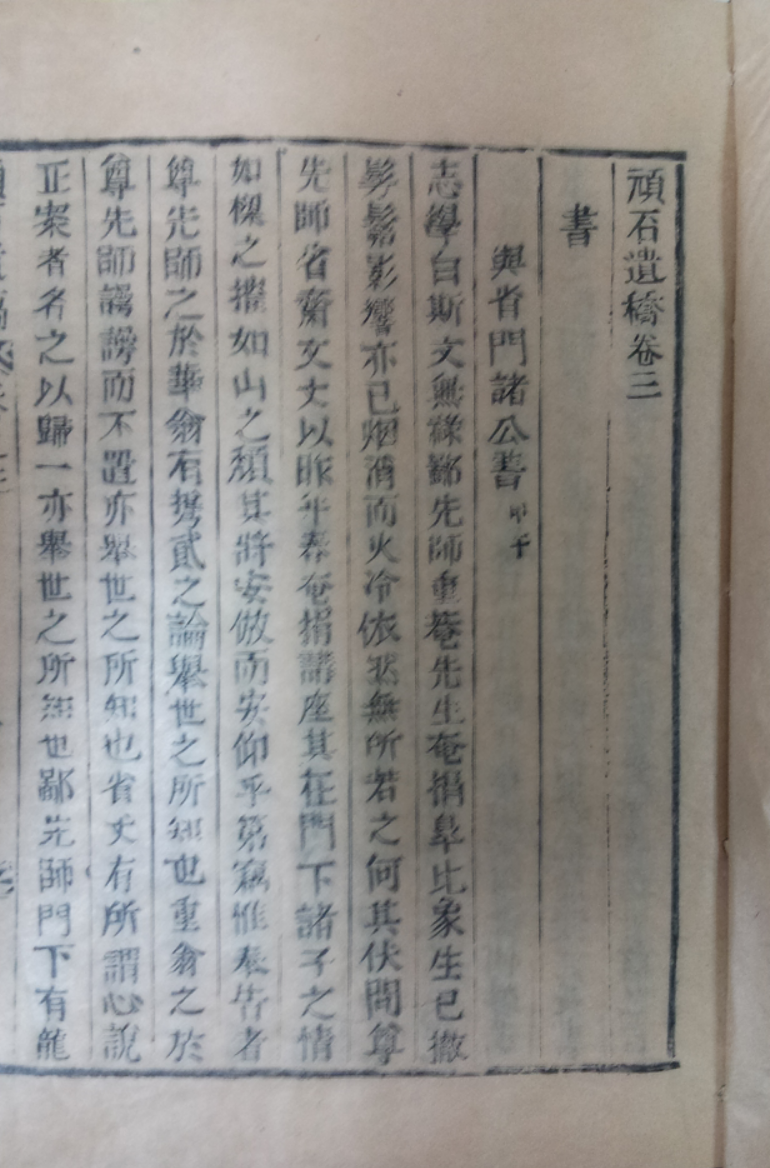 頑石遺稿卷三
書
與省門諸公書 甲午
志學白斯文無祿鄙先師重菴先生奄捐皐比象生已撤
髣髴影響亦已烟消而火冷依然無所若之何其伏問尊
先師省齋文丈以昨年春奄捐講座其在門下諸子之情
如樑之摧如山之頹其將安倣而安仰乎第竊惟奉告者
尊先師之於華翁有携貳之論擧世之所知也重翁之於
尊先師譏謗而不置亦擧世之所知也省丈有所謂心說
正案者名之以歸一亦擧世之所知也鄙先師門下有龍